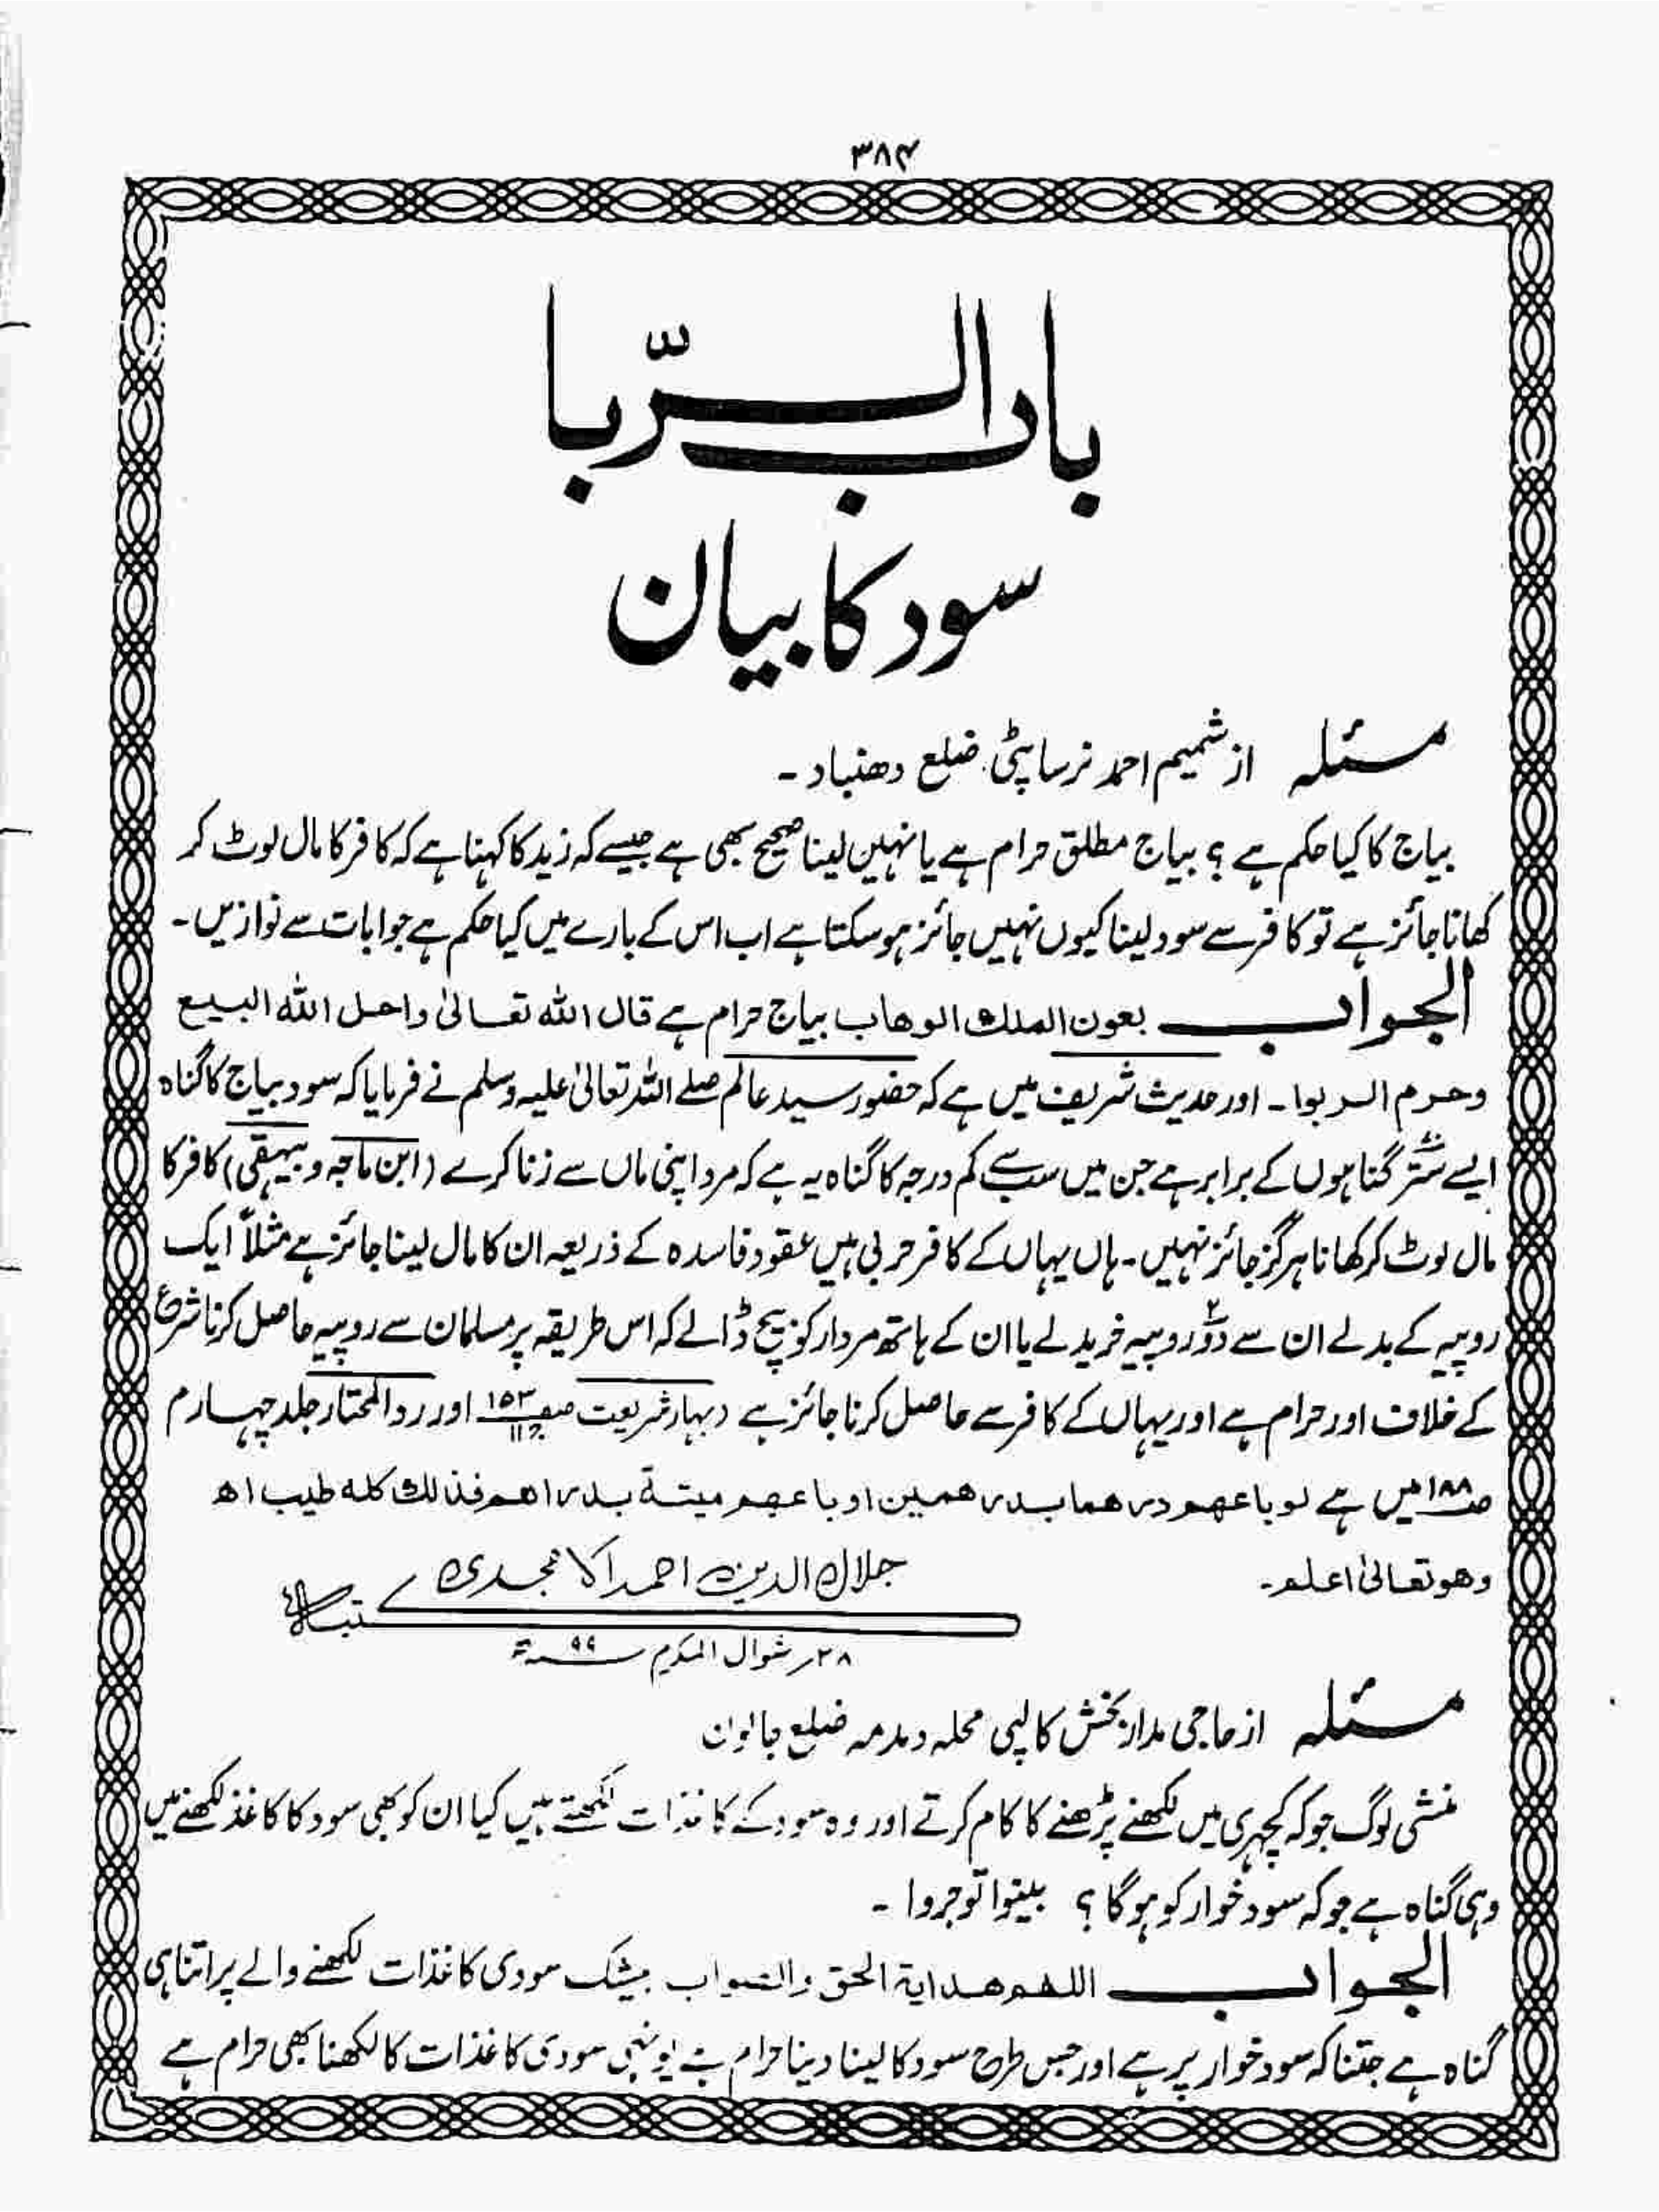 ۳۸۴
باب الرّبا
سود کا بیان
مسئلہ از شمیم احمد نرساپٹی ضلع دھنباد۔
بیاج کا کیا حکم ہے ؟ بیاج مطلق حرام ہے یا نہیں لینا صحیح بھی ہے جیسے کہ زید کا کہنا ہے کہ کافر کا مال لوٹ کر
کھانا جائز ہے تو کافر سے سود لینا کیوں نہیں جائز ہوسکتا ہے اب اس کے بارے میں کیا حکم ہے جوابات سے نوازیں۔
الجواب بعون الملك الوهاب بیاج حرام ہے قال اللہ تعالیٰ واحل اللہ البیع
وحرم الربوا۔ اور حدیث شریف میں ہے کہ حضور سید عالم صلے اللہ تعالیٰ علیہ وسلم نے فرمایا کہ سود بیاج کا گناہ
ایسے ستّر۷۰ گناہوں کے برابر ہے جن میں سب سے کم درجہ کا گناہ یہ ہے کہ مرد اپنی ماں سے زنا کرے (ابن ماجہ و بیہقی) کافر کا
مال لوٹ کر کھانا ہرگز جائز نہیں۔ ہاں یہاں کے کافر حربی ہیں عقود فاسدہ کے ذریعہ ان کا مال لینا جائز ہے مثلاً ایک
روپیہ کے بدلے ان سے دو۲ روپیہ خرید لے یا ان کے ہاتھ مردار کو بیچ ڈالے کہ اس طریقہ پر مسلمان سے روپیہ حاصل کرنا شرع
کے خلاف اور حرام ہے اور یہاں کے کافر سے حاصل کرنا جائز ہے (بہار شریعت ص۱۵۳ ج۱۱ اور رد المحتار جلد چہارم
ص۱۸۸ میں ہے لو باعهم درهما بدرهمين او باعهم ميتة بدراهم فذلك كله طيب اھ
وهو تعالیٰ اعلم۔
جلال الدین احمد الامجدی
کتبہ
۲۸؍ شوال المکرم ۹۹ھ
مسئلہ از حاجی مدار بخش کالپی محلہ دمدمہ ضلع جالون
منشی لوگ جو کہ کچہری میں لکھنے پڑھنے کا کام کرتے اور وہ سود کے کاغذات لکھتے ہیں کیا ان کو بھی سود کا کاغذ لکھنے میں
وہی گناہ ہے جو کہ سود خوار کو ہوگا ؟ بینوا توجروا ۔
الجواب اللهم هداية الحق والصواب بیشک سودی کاغذات لکھنے والے پر اتنا ہی
گناہ ہے جتنا کہ سود خوار پر ہے اور جس طرح سود کا لینا دینا حرام ہے یونہی سودی کاغذات کا لکھنا بھی حرام ہے